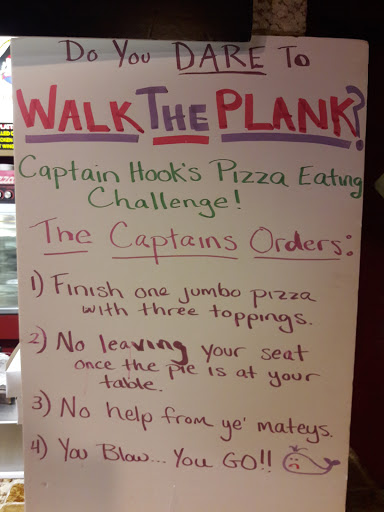 Do You DARE To
WALK THE PLANK?
Captain Hook's Pizza Eating
Challenge!
The Captains Orders:
1) Finish one jumbo pizza
with three toppings.
2) No leaving your seat
once the pie is at your
table.
3) No help from ye' mateys.
4) You Blow... You GO!!